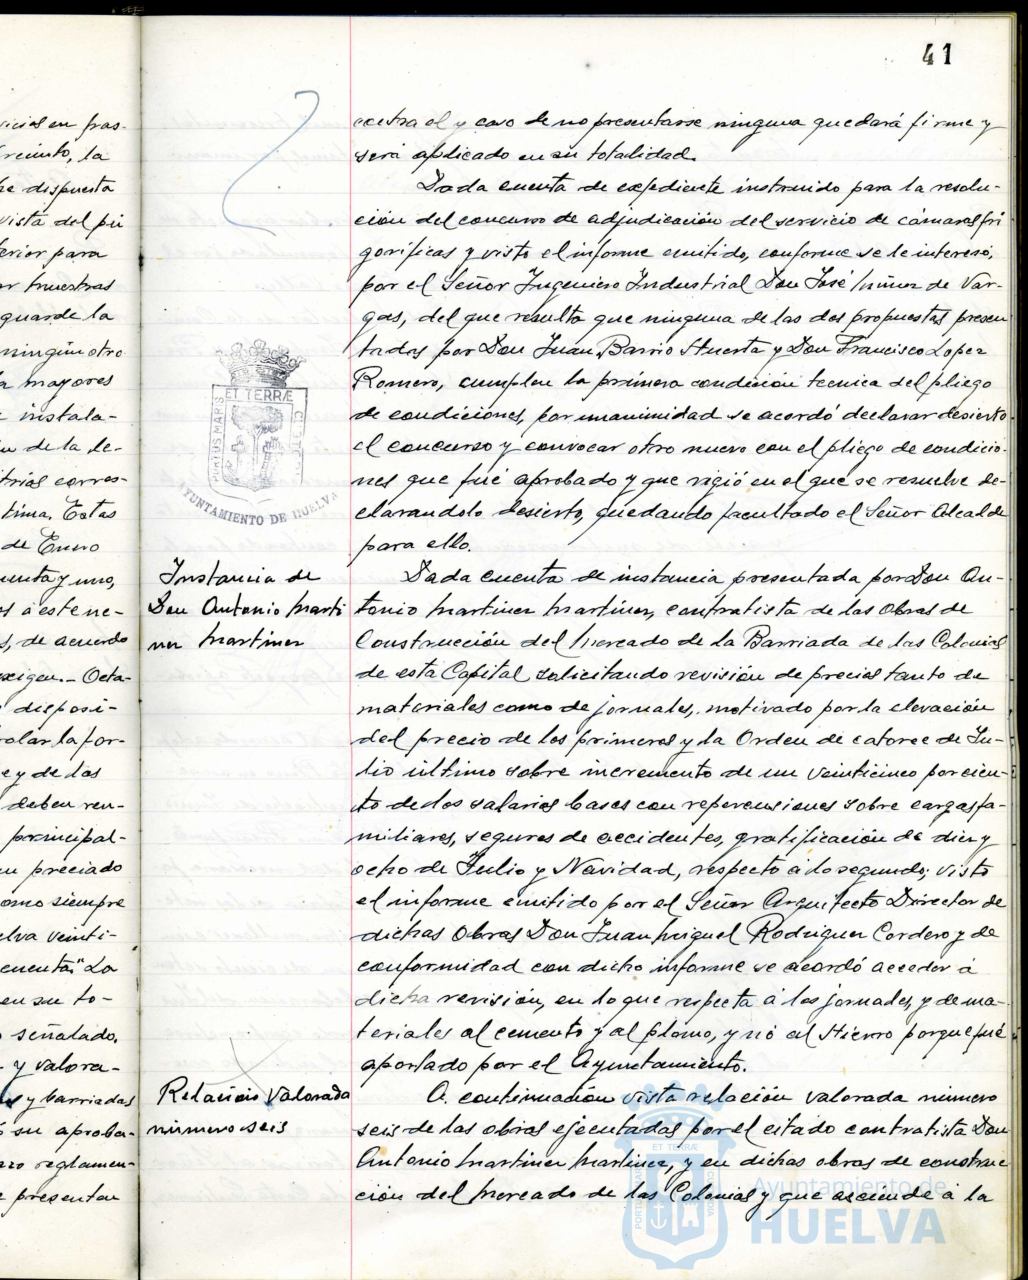 41
vicial en fras-
la
dispuesta
vista del pú
ferior para
muestras
guarde la
ningún otro
a mayores
instala-
de la le-
trias corres-
tima. Estas
de Enero
uenta y uno,
a este ne-
s, de acuerdo
exigen.- Octa-
disposi-
rolar la for-
e y de las
deben ren-
principal-
preciado
omo siempre
elva veinti-
cuenta" La
en su to-
señalado.
y valora-
y barriadas
su aproba-
zo reglamen-
presentan
contra el y caso de no presentarse ninguna quedará firme y
será aplicado en su totalidad.
Dada cuenta de expediente instruido para la resolu-
ción del concurso de adjudicación del servicio de cámaras fri
goríficas y visto el informe emitido, conforme se le interesó,
por el Señor Ingeniero Industrial Don José Núñez de Var-
gas, del que resulta que ninguna de las dos propuestas presen
tadas por Don Juan Barrio Huerta y Don Francisco Lopez
Romero, cumplen la primera condición tecnica del pliego
de condiciones, por unanimidad se acordó declarar desierto
el concurso y convocar otro nuevo con el pliego de condicio-
nes que fué aprobado y que rigió en el que se resuelve de-
clarandolo desierto, quedando facultado el Señor Alcalde
para ello.
PORTUS MARIS ET TERRÆ CUSTODIA
AYUNTAMIENTO DE HUELVA
Instancia de
Don Antonio Marti
nez Martinez
Dada cuenta de instancia presentada por Don An-
tonio Martinez Martinez, contratista de las Obras de
Construcción del Mercado de la Barriada de las Colonias
de esta Capital solicitando revisión de precios tanto de
materiales como de jornales, motivado por la elevación
del precio de los primeros y la Orden de catorce de Ju-
lio último sobre incremento de un veinticinco por cien-
to de los salarios bases con repercusiones sobre cargas fa-
miliares, seguros de accidentes, gratificación de diez y
ocho de Julio y Navidad, respecto a lo segundo; visto
el informe emitido por el Señor Arquitecto Director de
dichas Obras Don Juan Miguel Rodriguez Cordero y de
conformidad con dicho informe se acordó acceder á
dicha revisión, en lo que respecta á los jornales, y de ma-
teriales al cemento y al plomo, y nó al Hierro porque fué
aportado por el Ayuntamiento.
Relación Valorada
número seis
A continuación vista relación valorada número
seis de las obras ejecutadas por el citado contratista Don
Antonio Martinez Martinez, y en dichas obras de construc
ción del Mercado de las Colonias y que asciende á la
Ayuntamiento de
HUELVA